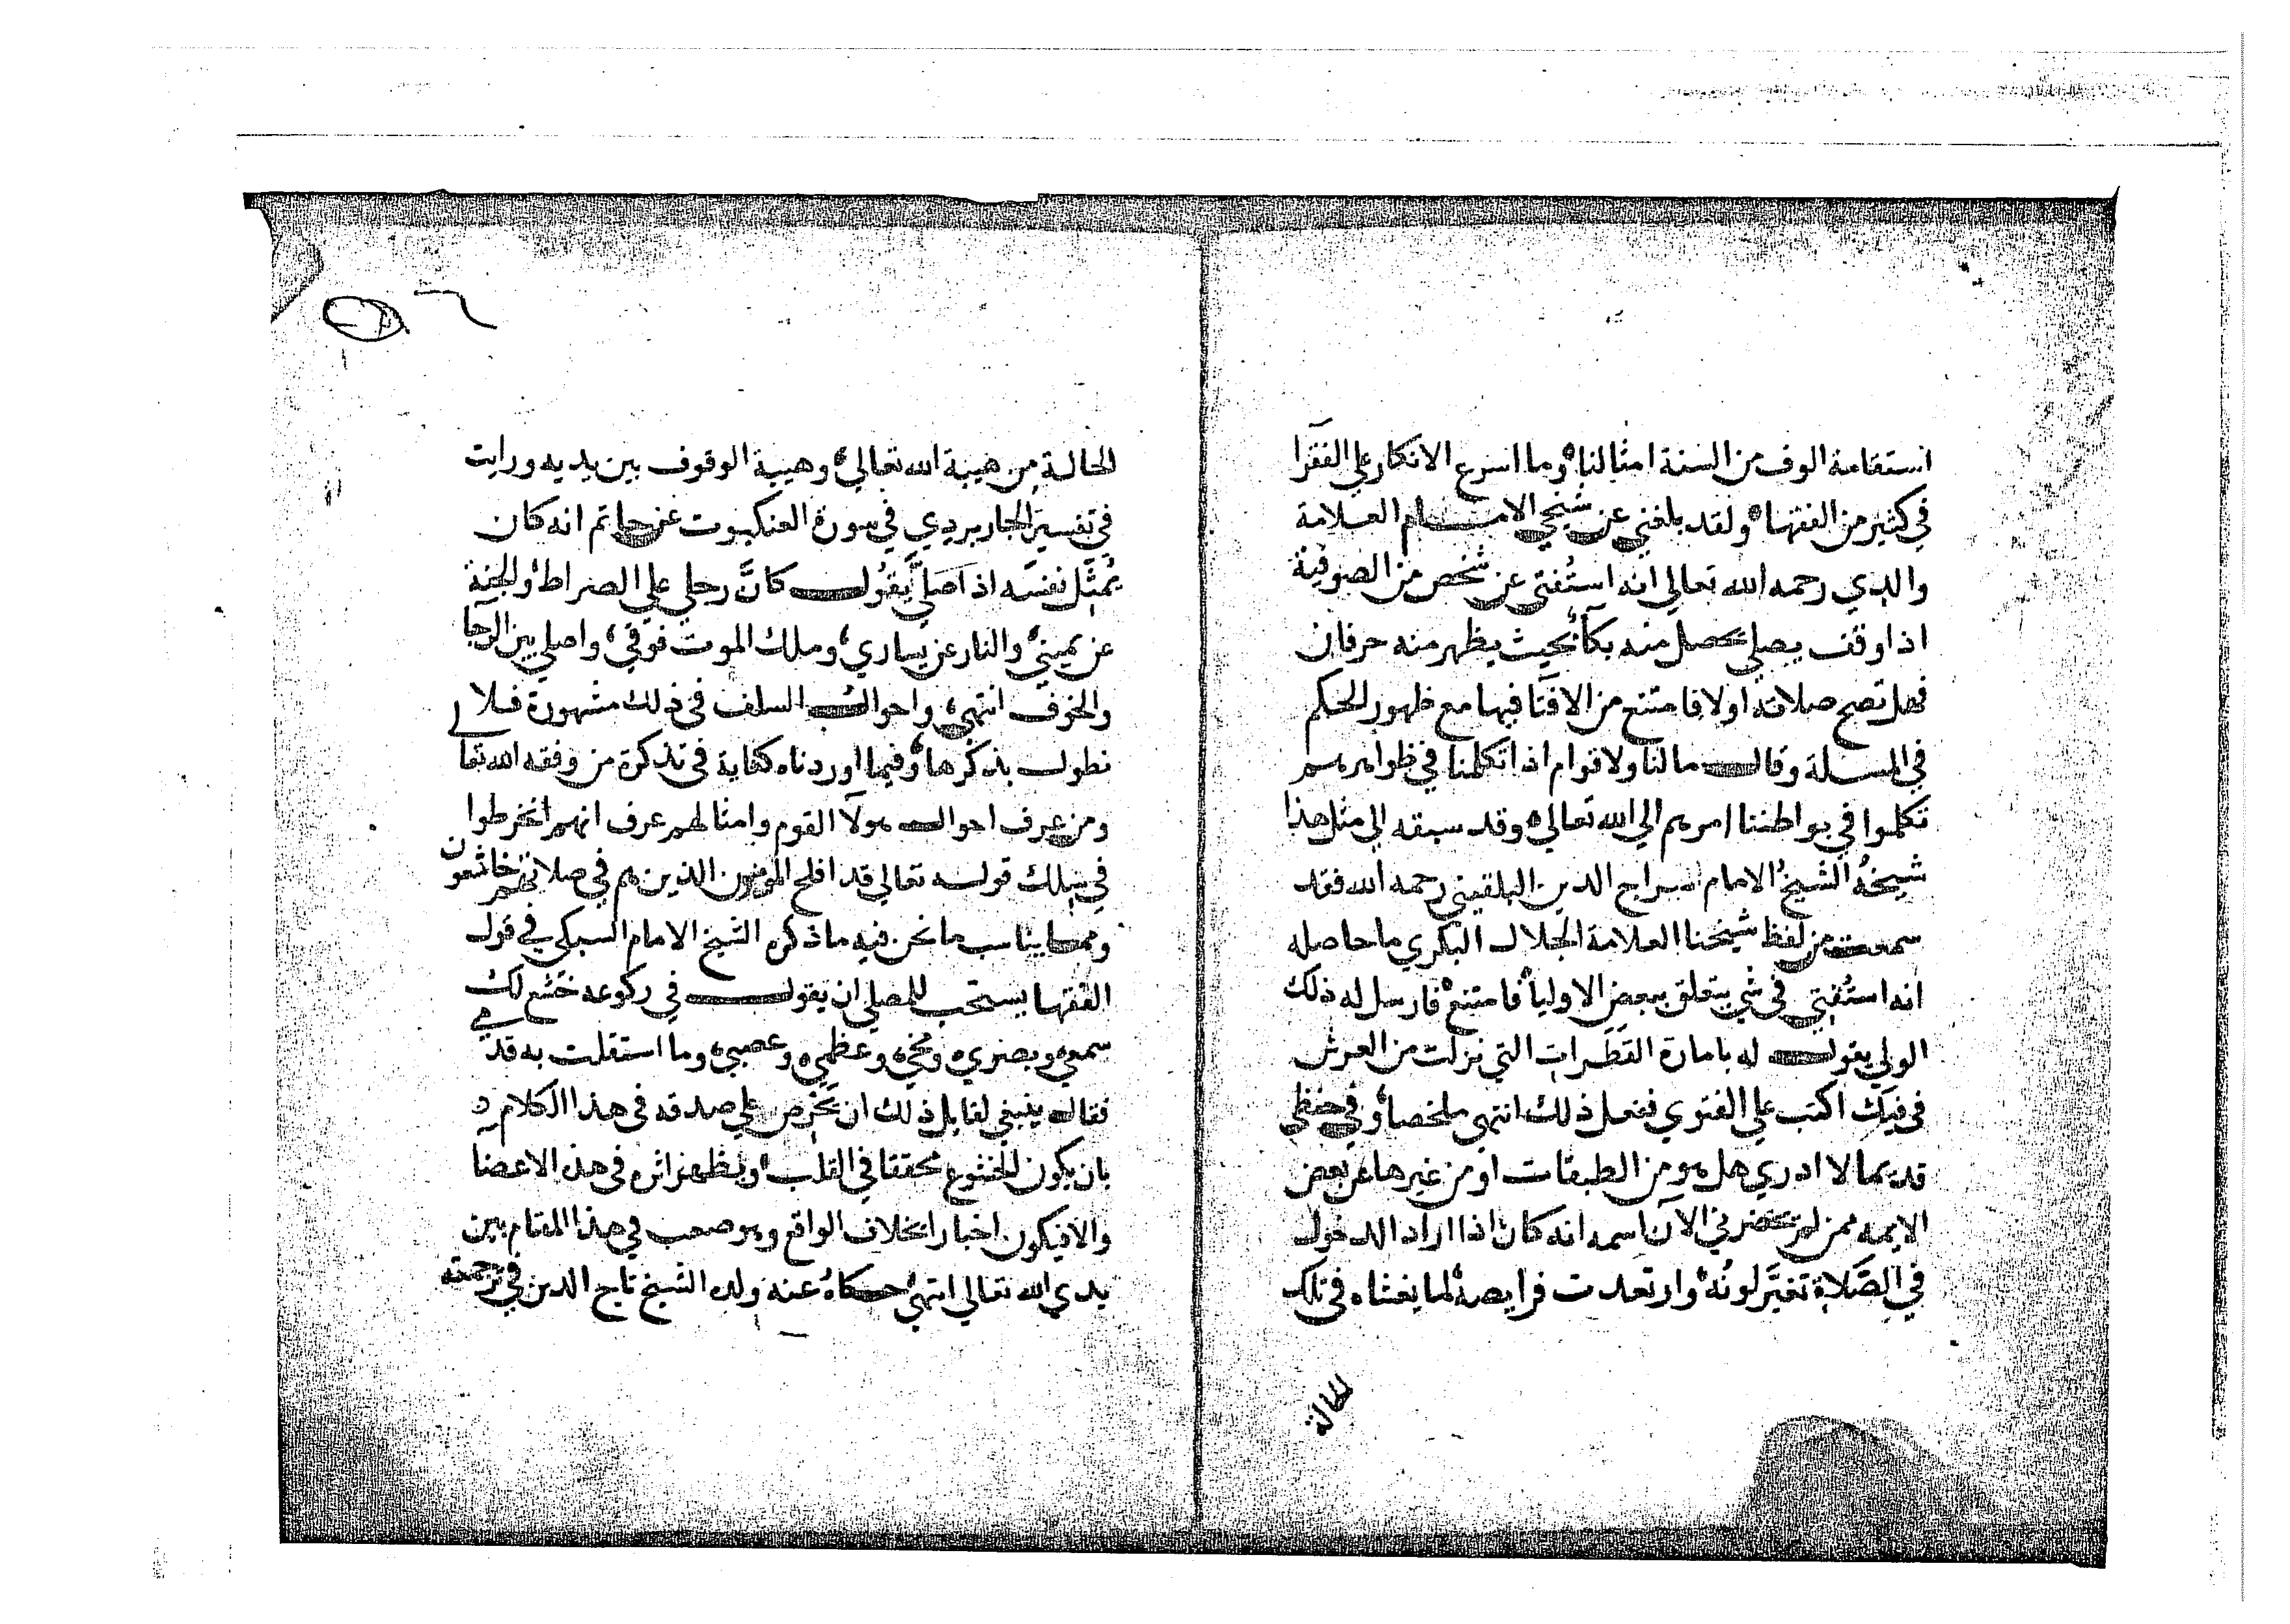 استقامة الوف من السنة امثالنا وما اسرع الانكار علي الفقرا
في كثير من الفقها ولقد بلغني عن شيخي الامام العلامة
والدي رحمه الله تعالي انه استُفتي عن شخص من الصوفية
اذا وقف يصلي يحصل منه بكآ بحيث يظهر منه حرفان
فهل تصح صلاته اولا فامتنع من الافتا فيها مع ظهور الحكم
في المسلة وقال مالنا ولاقوام اذا تكلمنا في ظواهرهم
تكلموا في بواطننا امرهم الي الله تعالي وقد سبقه الي مثل هذا
شيخهُ الشيخ الامام سراج الدين البلقيني رحمه الله فقد
سمعت من لفظ شيخنا العلامة الجلال البكري ما حاصله
انه استُفتي في شي يتعلق ببعض الاوليا فامتنع فارسل له ذلك
الولي يقول له بامارة القَطَرات التي نزلت من العرش
في فيك اكتب علي الفتوي ففعل ذلك انتهي ملخصا وفي حفظي
قديما لا ادري هل هو من الطبقات او من غيرها عن بعض
الايمه ممن لم يحضرني الآن اسمه انه كان اذا اراد الدخول
في الصَّلاة تغيَّر لونُه وارتعدت فرايصه لما يغشاه في تلك
الحالة
الحالة من هيبة الله تعالي وهيبة الوقوف بين يديه ورايت
في تفسير الجاربردي في سورة العنكبوت عن حاتم انه كان
يُمثّل نفسَه اذا صَلَّي يقُول كانَّ رجلي علي الصراط والجنة
عن يميني والنار عن يساري وملك الموت فوقي واصلي بين الرجا
والخوف انتهي واحوال السلف في ذلك مشهورة فلا
نطول بذكرها وفيما اوردناه كفاية في تذكرة من وفقه الله تعا
ومن عرف احوال هولآ القوم وامثالهم عرف انهم انخرطوا
في سلك قوله تعالي قد افلح المومنون الذين هم في صلاتهم خاشعون
ومما يناسب ما نحن فيه ما ذكره الشيخ الامام السبكي في قول
الفقها يستحب للمصلي ان يقول في ركوعه خشع لك
سمعي وبصري ومخي وعظمي وعصبي وما استقلت به قدمي
فقال ينبغي لقايل ذلك ان يحرص علي صدقه في هذا الكلام
بان يكون الخشوع محققا في القلب ويظهر اثره في هذه الاعضا
والا فيكون اخبارا بخلاف الواقع وهو صعب في هذا المقام بين
يدي الله تعالي انتهي حكاهُ عنه ولده الشيخ تاج الدين في ترجمته